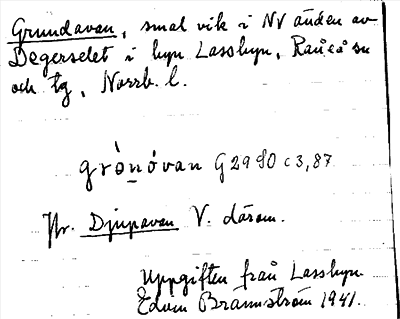 Grundavan, smal vik i NV änden av
Degerselet i byn Lassbyn, Råneå sn
och tg, Norrb. l.
grònóvan G2990 c3,87
Jfr. Djupavan V. därom.
Uppgiften från Lassbyn
Edvin Brännström 1941.